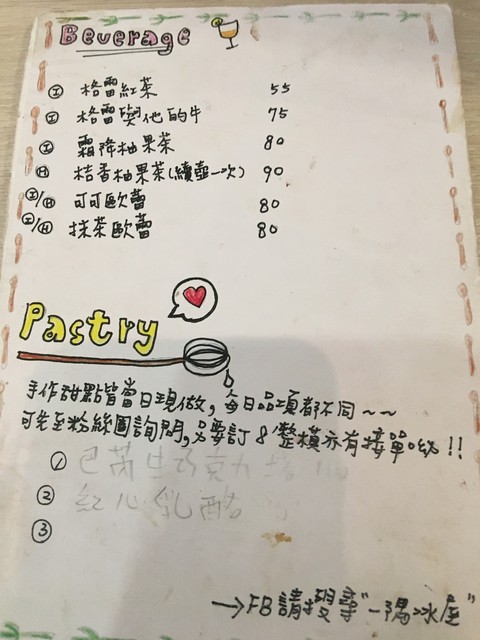 Beverage
Ⓘ 格雷紅茶 55
Ⓘ 格雷與他的牛 75
Ⓘ 霜降柚果茶 80
Ⓗ 桔香柚果茶(續壺一次) 90
Ⓘ/Ⓗ 可可歐蕾 80
Ⓘ/Ⓗ 抹茶歐蕾 80
Pastry
手作甜點皆當日現做,每日品項都不同~~
可先至粉絲團詢問,必要訂8"整模亦有接單呦!!
① 巴芮生巧克力塔
② 紅心乳酪
③
→FB請搜尋"一隅冰屋"